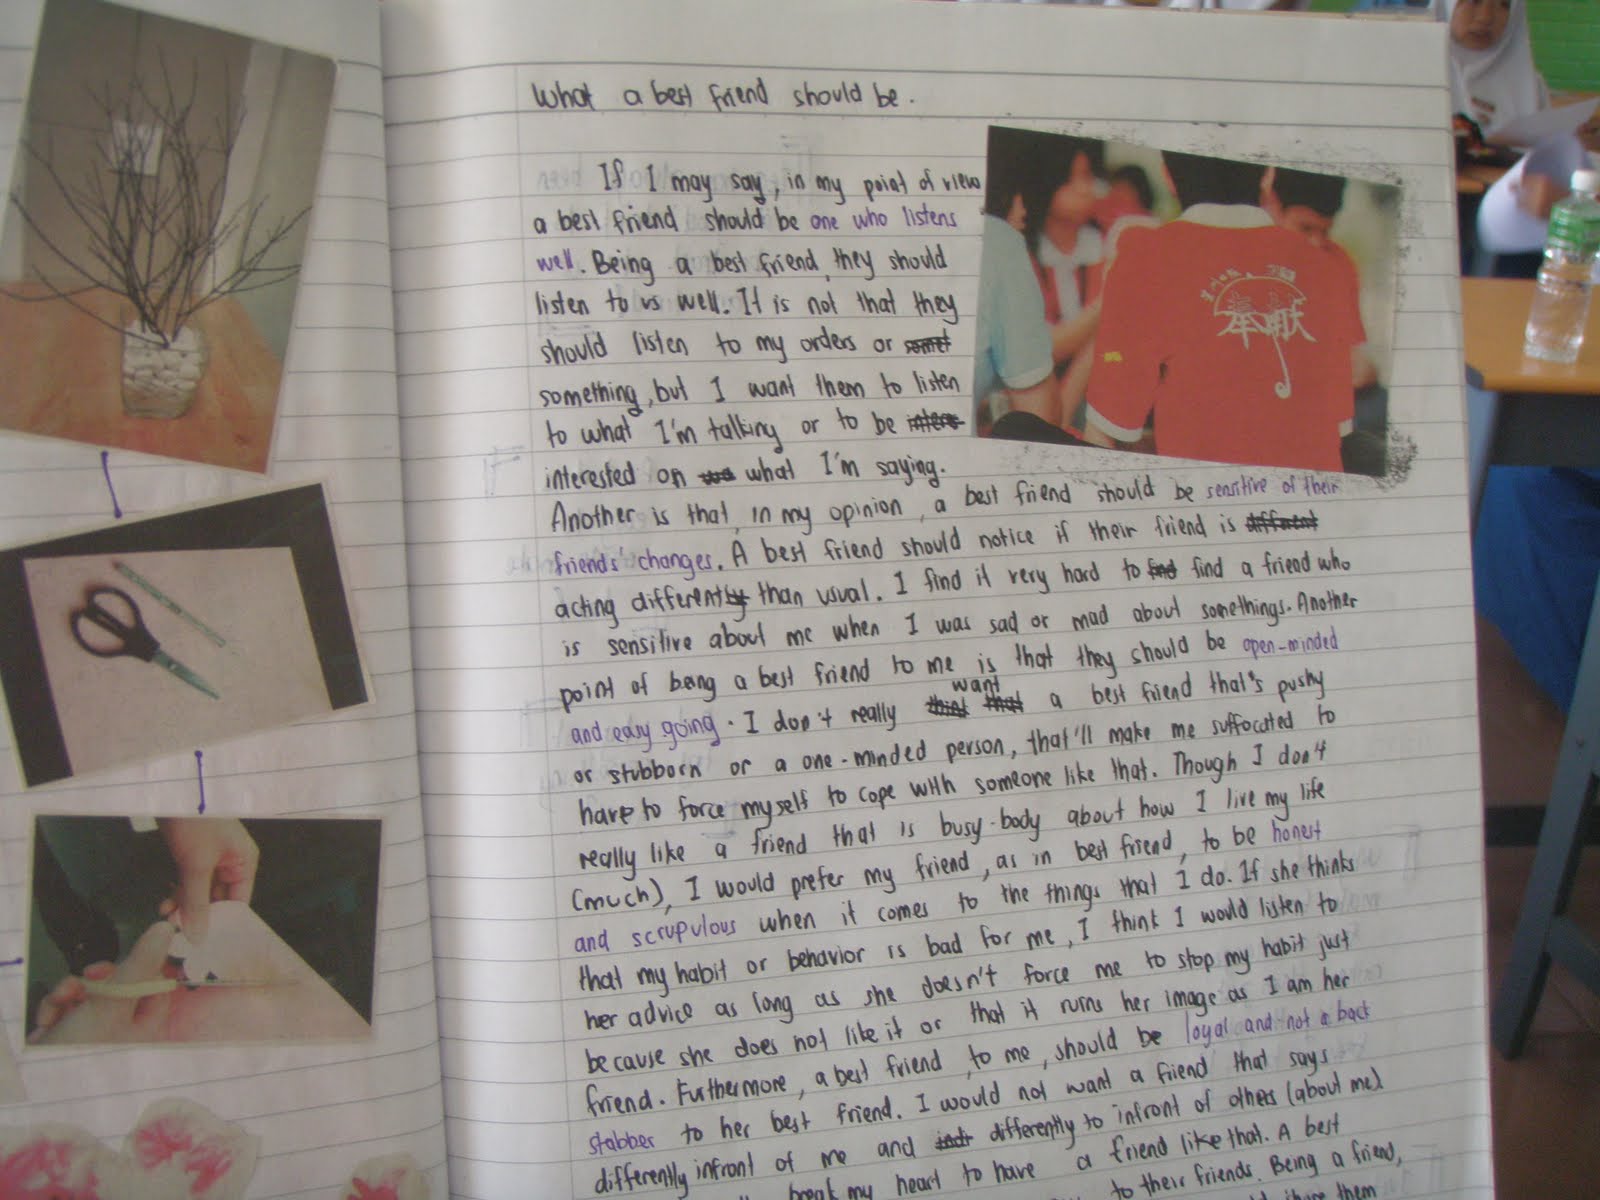 What a best friend should be.
If I may say, in my point of view
a best friend should be one who listens
well. Being a best friend, they should
listen to us well. It is not that they
should listen to my orders or somet
something, but I want them to listen
to what I'm talking or to be inters
interested on wa what I'm saying.
Another is that, in my opinion, a best friend should be sensitive of their
friends' changes. A best friend should notice if their friend is different
acting differently than usual. I find it very hard to find a friend who
is sensitive about me when I was sad or mad about somethings. Another
point of being a best friend to me is that they should be open-minded
want
and easy going. I don't really think that a best friend that's pushy
or stubborn or a one-minded person, that'll make me suffocated to
have to force myself to cope with someone like that. Though I don't
really like a friend that is busy-body about how I live my life
(much), I would prefer my friend, as in best friend, to be honest
and scrupulous when it comes to the things that I do. If she thinks
that my habit or behavior is bad for me, I think I would listen to
her advice as long as she doesn't force me to stop my habit just
because she does not like it or that it ruins her image as I am her
friend. Furthermore, a best friend, to me, should be loyal and not a back
stabber to her best friend. I would not want a friend that says
differently infront of me and differently to infront of others (about me).
break my heart to have a friend like that. A best
to their friends. Being a friend,
share them
奉献